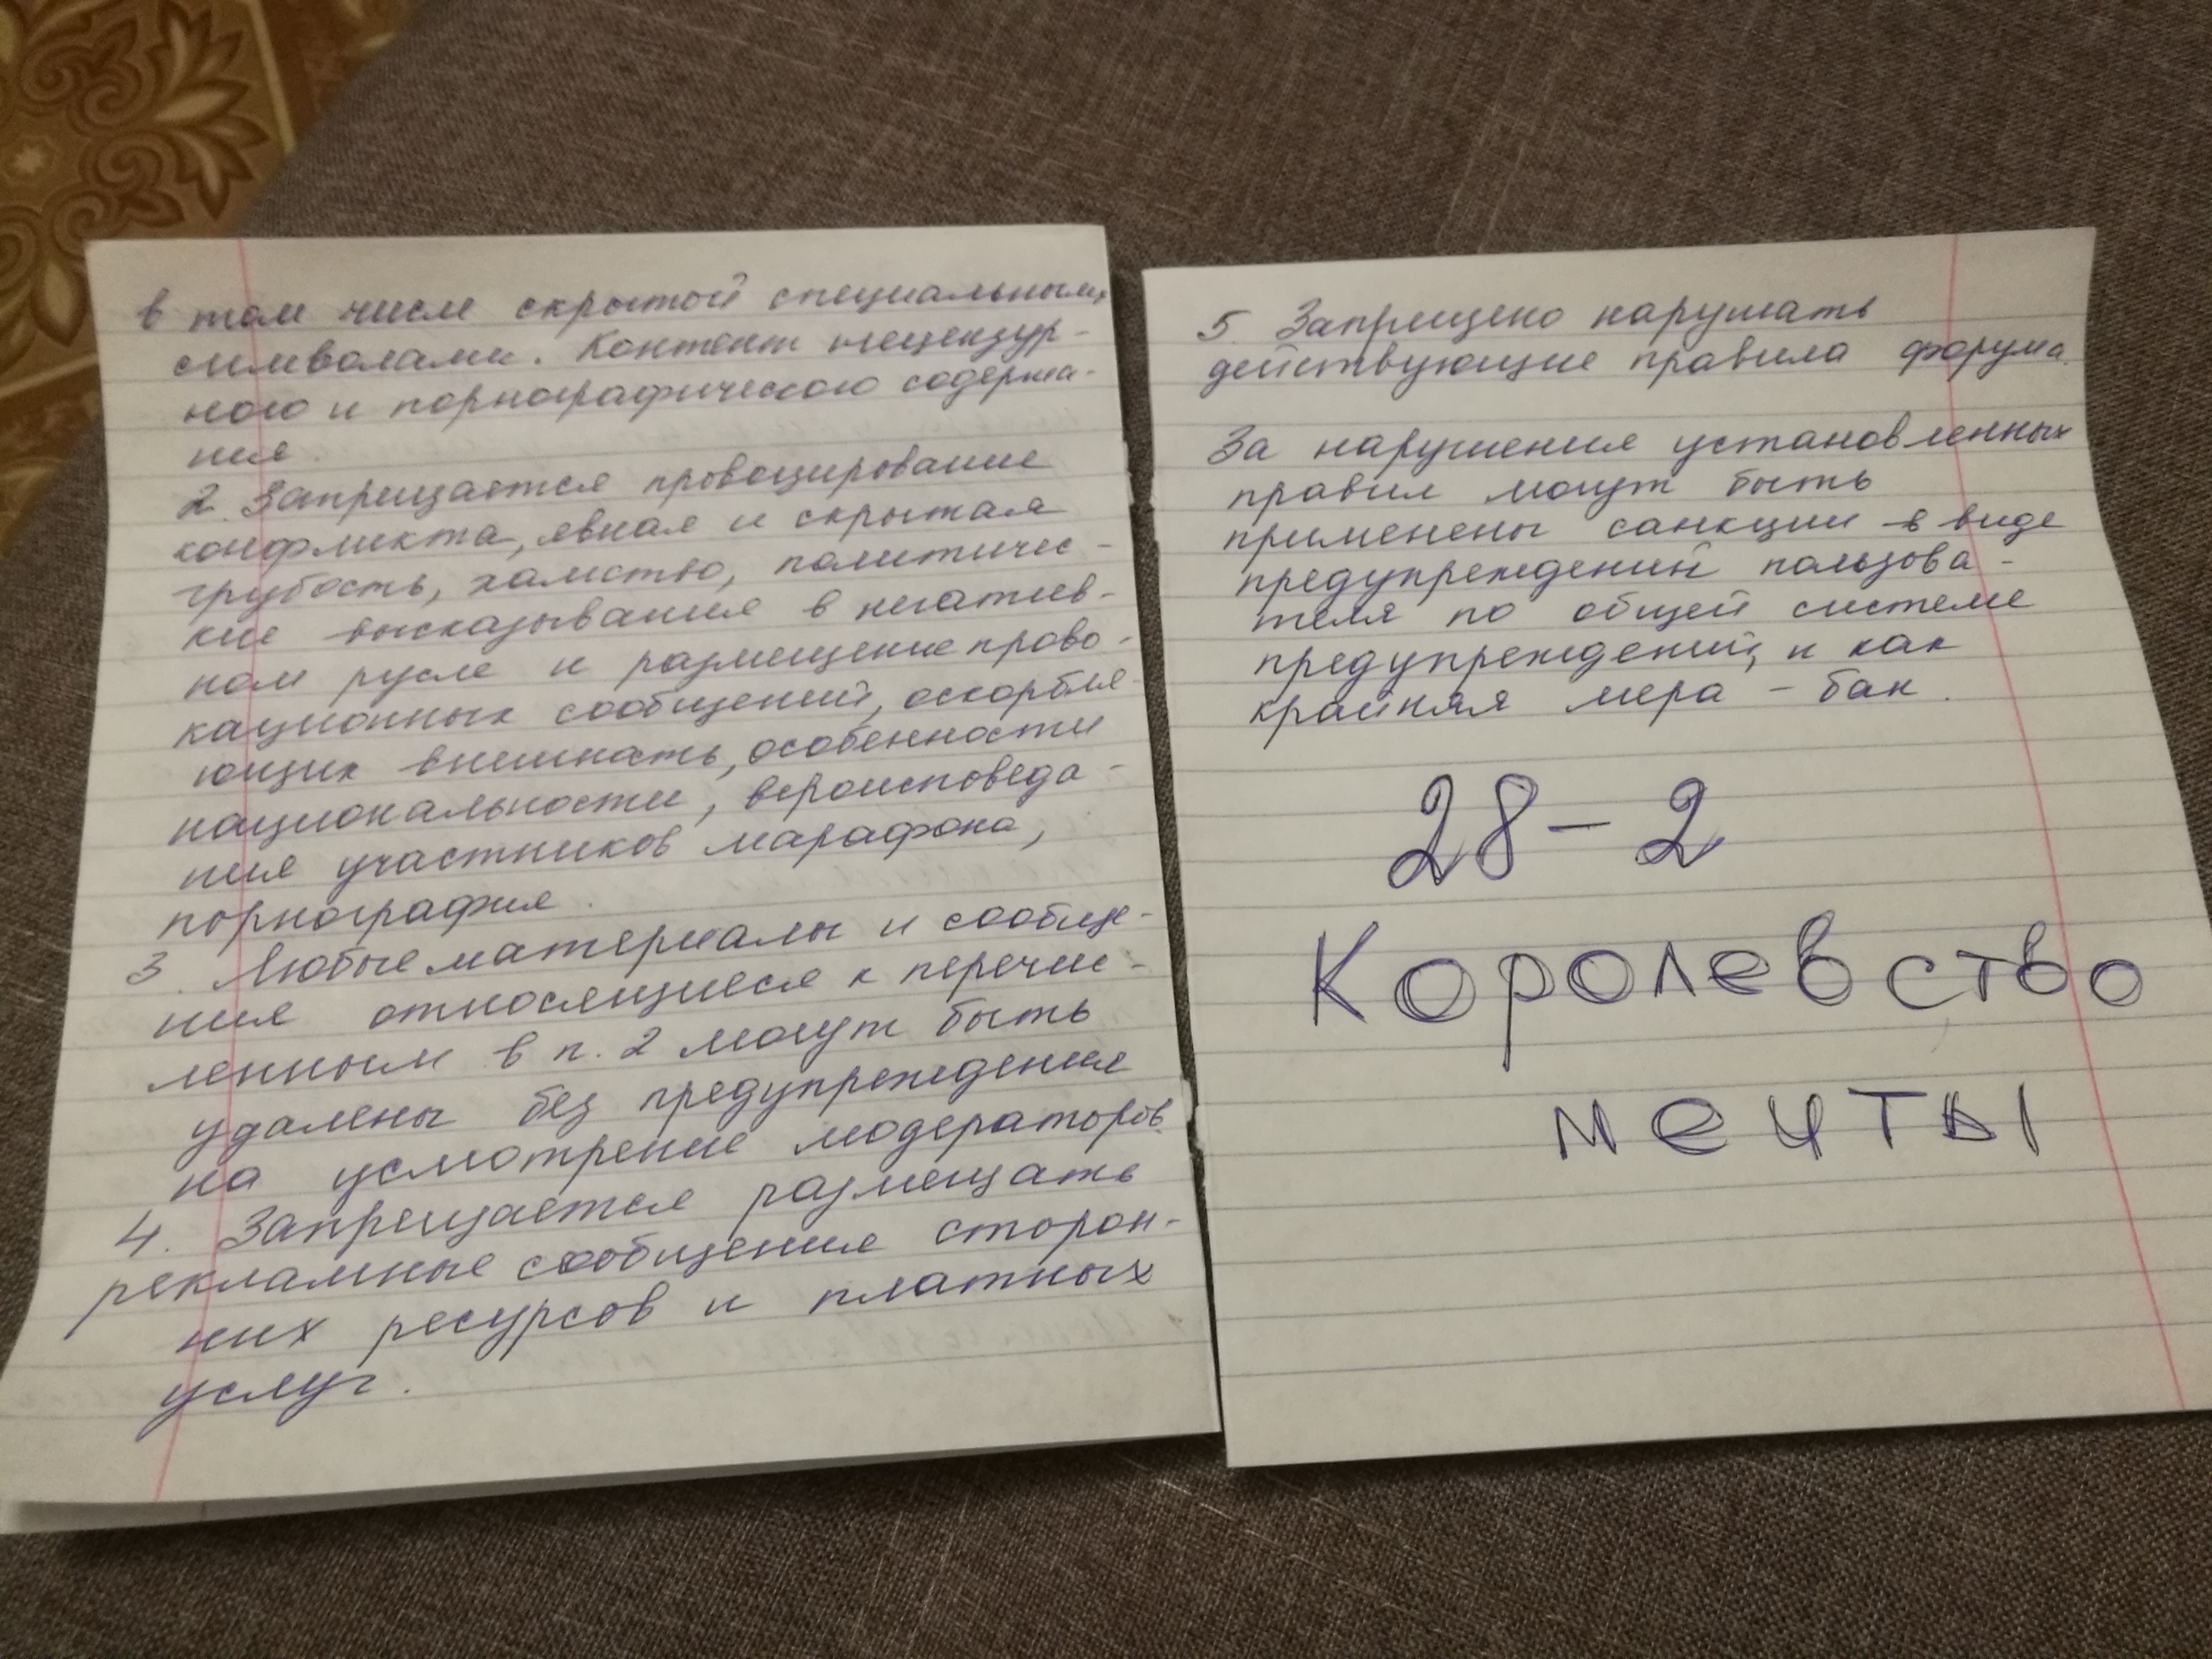 в том числе скрытой специальными
символами. Контент нецензур-
ного и порнографического содержа-
ния.
2. Запрещается провоцирование
конфликта, явная и скрытая
грубость, хамство, политичес-
кие высказывания в негатив-
ном русле и размещение прово-
кационных сообщений, оскорбля-
ющих внешность, особенности
национальности, вероисповеда-
ния участников марафона,
порнография.
3. Любые материалы и сообще-
ния относящиеся к перечис-
ленным в п. 2 могут быть
удалены без предупреждения
на усмотрение модераторов.
4. Запрещается размещать
рекламные сообщения сторон-
них ресурсов и платных
услуг.
5. Запрещено нарушать
действующие правила форума.
За нарушения установленных
правил могут быть
применены санкции в виде
предупреждений пользова-
теля по общей системе
предупреждений, и как
крайняя мера - бан.
28-2
Королевство
мечты